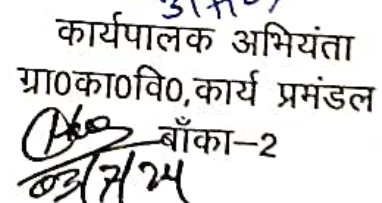 कार्यपालक अभियंता
ग्रा0का0वि0,कार्य प्रमंडल
बाँका-2
03/7/24